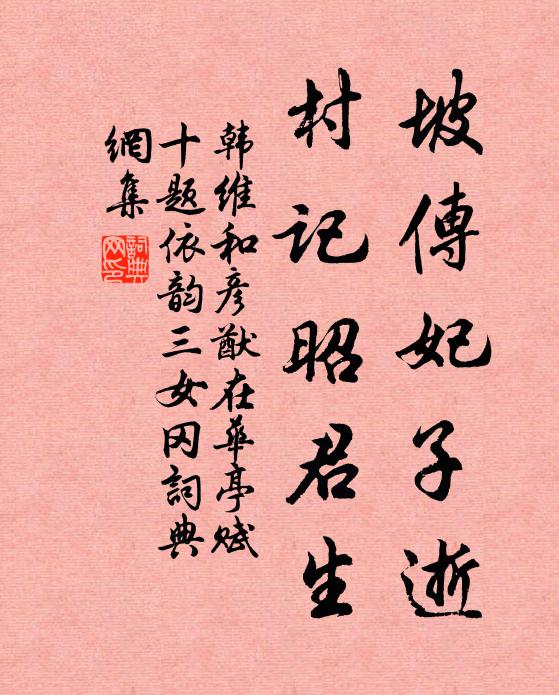 坡傳妃子逝
村記昭君生
韩维和彦猷在華亭賦
十题依韵三女冈詞典
網集
詞典網印